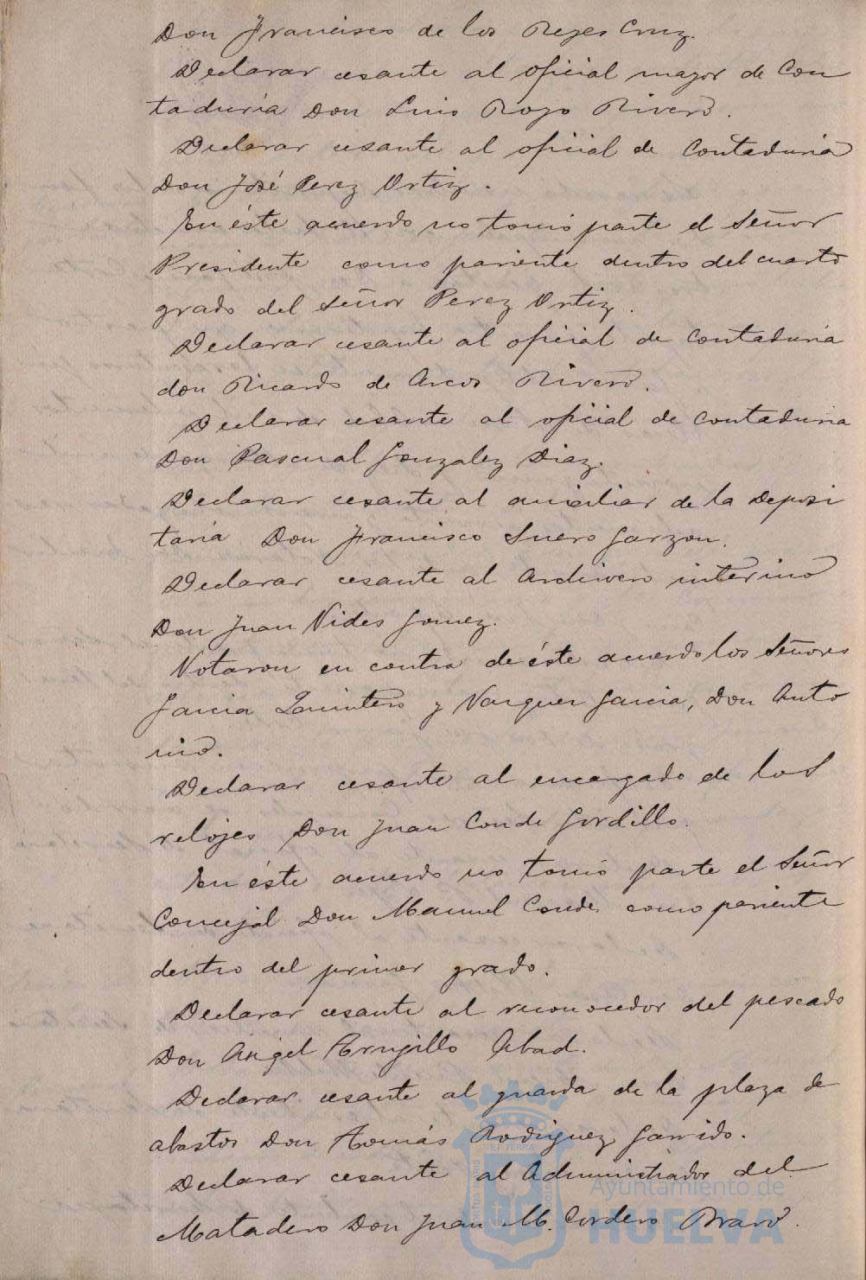 Don Francisco de los Reyes Cruz.
Declarar cesante al oficial mayor de Con
taduría Don Luis Rojo Rivero.
Declarar cesante al oficial de Contaduria
Don José Perez Ortiz.
En éste acuerdo no tomó parte el Señor
Presidente como pariente dentro del cuarto
grado del Señor Perez Ortiz.
Declarar cesante al oficial de Contaduria
don Ricardo de Arcos Rivero.
Declarar cesante al oficial de Contaduria
Don Pascual Gonzalez Diaz.
Declarar cesante al auxiliar de la Deposi
taria Don Francisco Suero Garzon.
Declarar cesante al Archivero interino
Don Juan Vides Gomez.
Votaron en contra de éste acuerdo los Señores
Garcia Quintero y Vazquez Garcia, Don Anto
nio.
Declarar cesante al encargado de los
relojes Don Juan Conde Gordillo.
En éste acuerdo no tomó parte el Señor
Concejal Don Manuel Conde, como pariente
dentro del primer grado.
Declarar cesante al reconocedor del pescado
Don Angel Trujillo Abad.
Declarar cesante al guarda de la plaza de
abastos Don Tomás Rodriguez Garrido.
Declarar cesante al Administrador del
Matadero Don Juan M. Cordero Bravo.
Ayuntamiento de
HUELVA